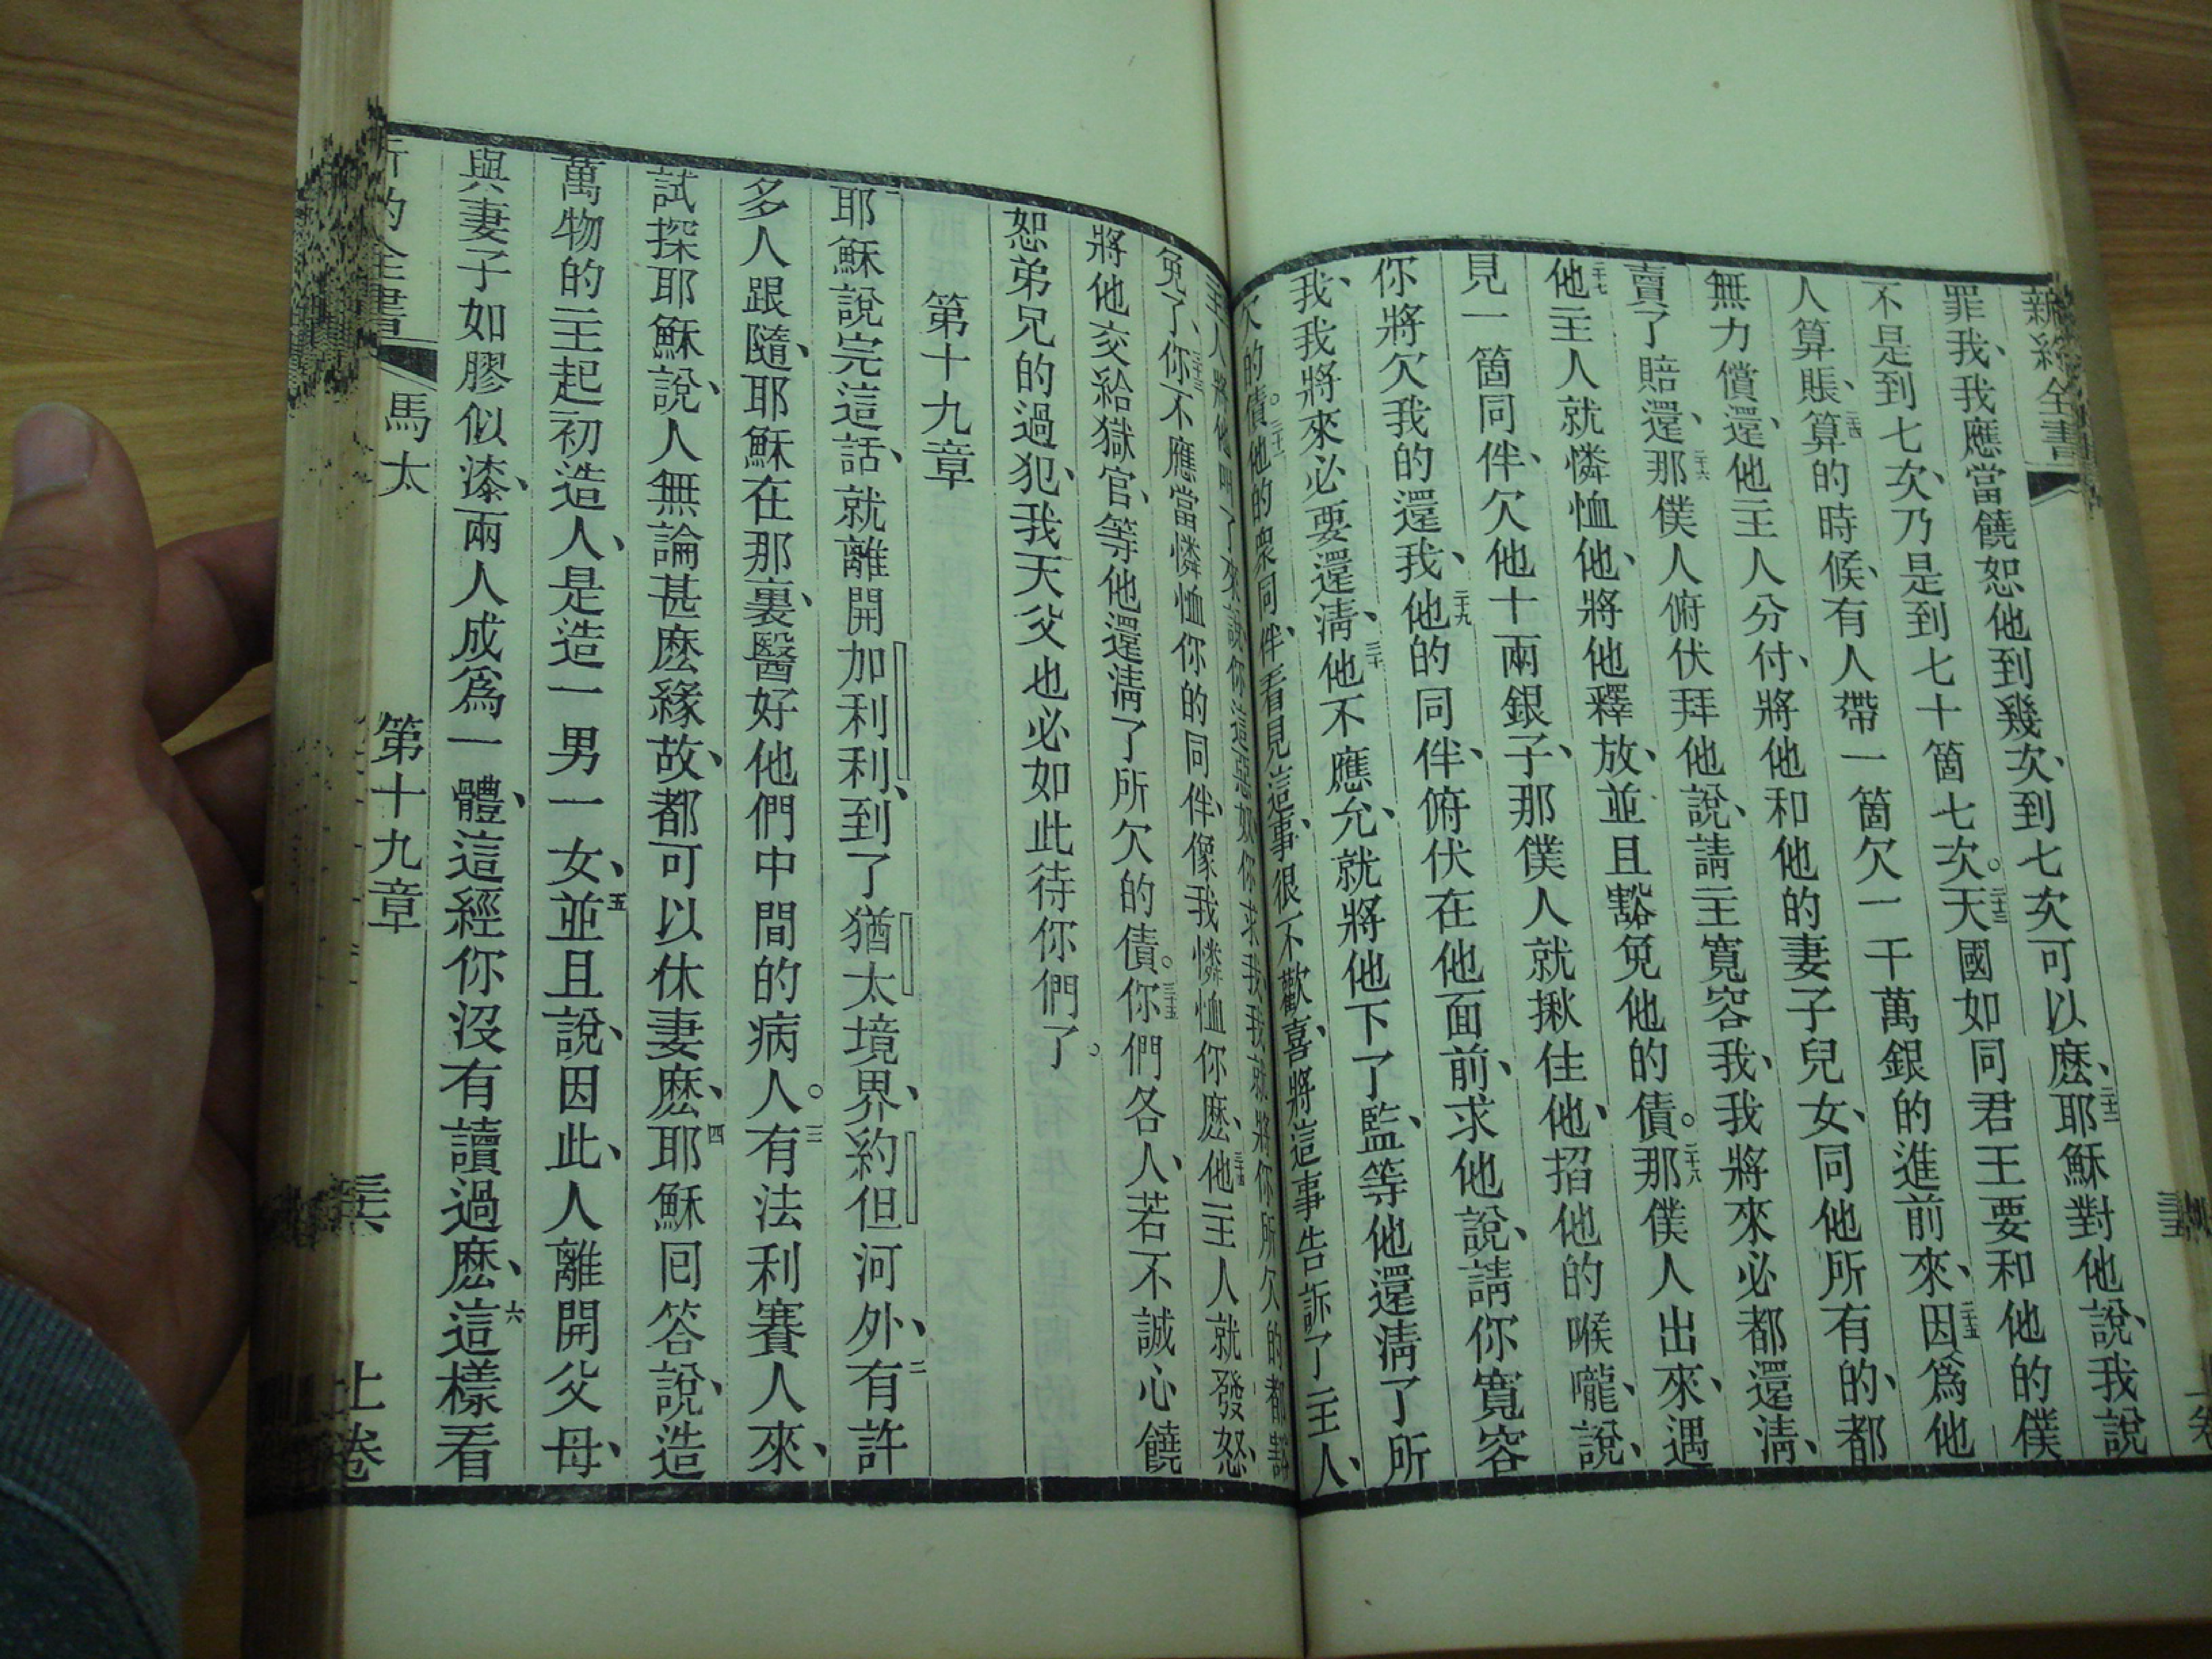 新約全書
罪我、我應當饒恕他到幾次、到七次可以麽、耶穌對他說、我說
不是到七次、乃是到七十箇七次。天國如同君王要和他的僕
人算賬、算的時候、有人帶一箇欠一千萬銀的進前來、因爲他
無力償還、他主人分付、將他和他的妻子兒女、同他所有的、都
賣了賠還、那僕人俯伏拜他說、請主寬容我、我將來必都還淸、
他主人就憐恤他、將他釋放、並且豁免他的債。那僕人出來、遇
見一箇同伴、欠他十兩銀子、那僕人就揪住他、掐他的喉嚨、說、
你將欠我的還我、他的同伴、俯伏在他面前、求他說、請你寬容
我、我將來必要還淸、他不應允、就將他下了監、等他還淸了所
欠的債。他的衆同伴、看見這事、很不歡喜、將這事告訴了主人、
主人將他叫了來、說、你這惡奴、你求我、我就將你所欠的都
免了、你不應當憐恤你的同伴、像我憐恤你麽、他主人就發怒、
將他交給獄官、等他還淸了所欠的債。你們各人、若不誠心饒
恕弟兄的過犯、我天父也必如此待你們了。
第十九章
一耶穌說完這話、就離開加利利、到了猶太境界、約但河外、二有許
多人跟隨、耶穌在那裏、醫好他們中間的病人。三有法利賽人來、
試探耶穌說、人無論甚麽緣故、都可以休妻麽、四耶穌囘答說、造
萬物的主起初造人、是造一男一女、五並且說、因此、人離開父母、
與妻子如膠似漆、兩人成爲一體、這經你沒有讀過麽、六這樣看
新約全書 馬太 第十九章 上卷